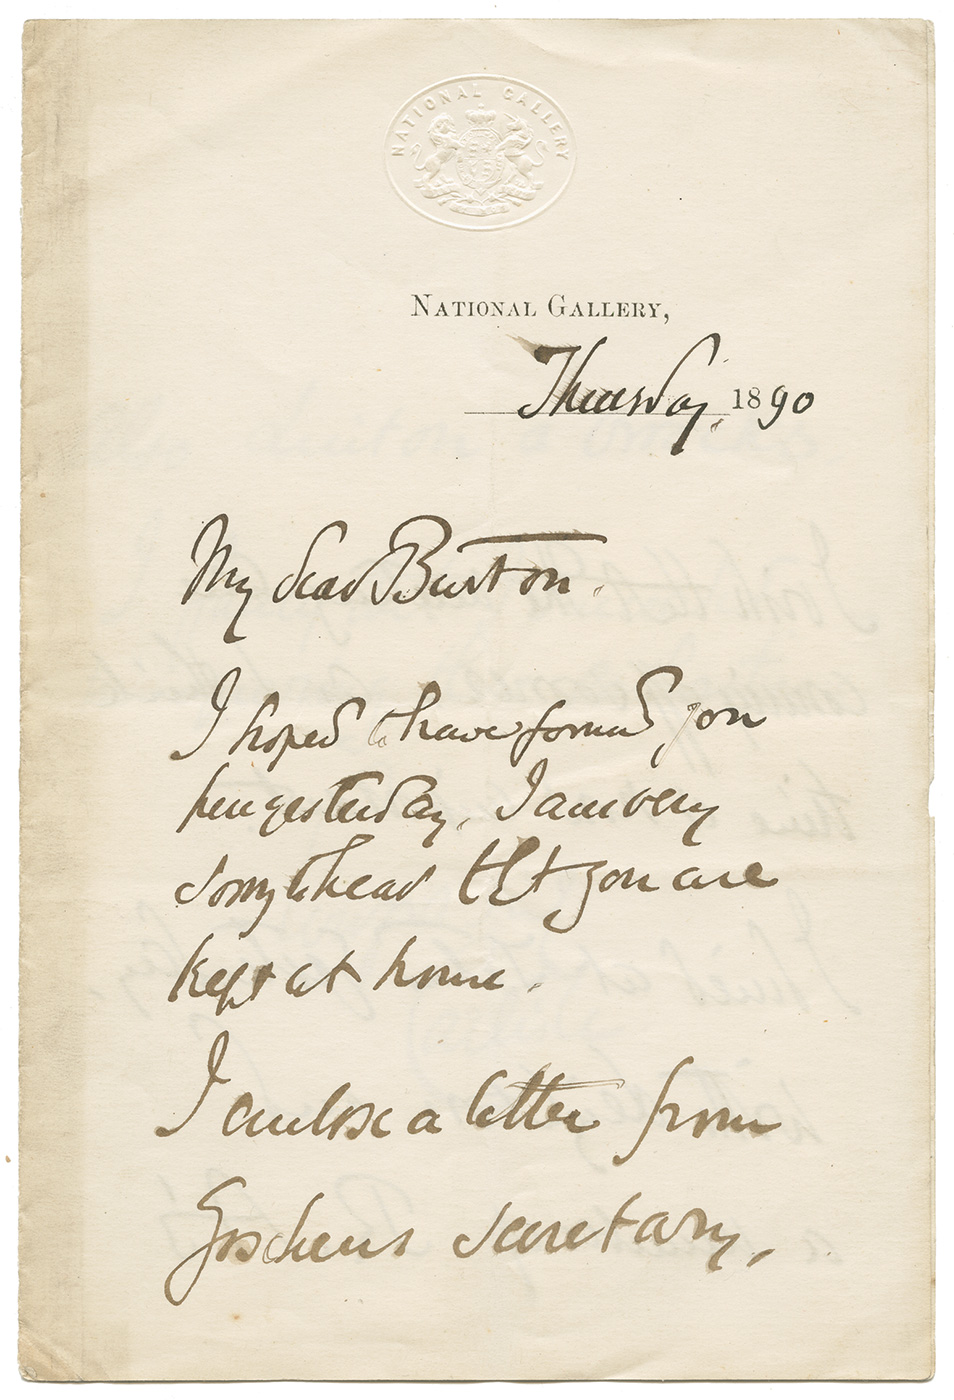 NATIONAL GALLERY
NATIONAL GALLERY,
Thursday, 1890
My dear Burton.
I hoped to have found you
here yesterday. I am very
sorry to hear tht you are
kept at home.
I enclose a letter from
Goschens secretary,